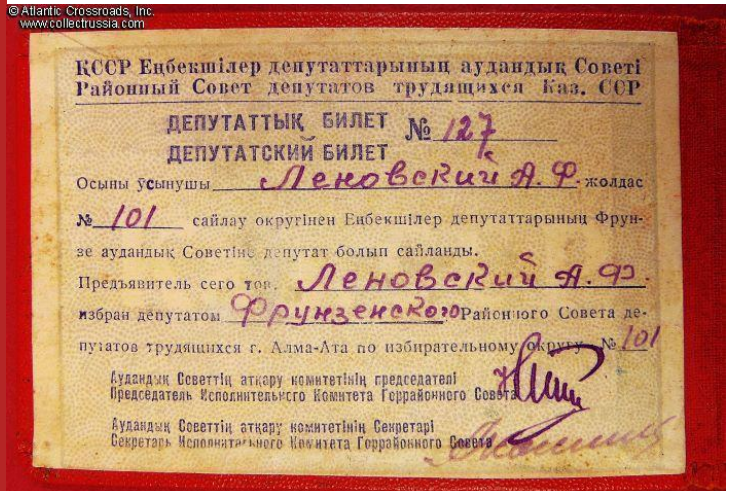 © Atlantic Crossroads, Inc.
www.collectrussia.com
ҚССР Еңбекшілер депутаттарының аудандық Советі
Районный Совет депутатов трудящихся Каз. ССР
ДЕПУТАТТЫҚ БИЛЕТ № 127
ДЕПУТАТСКИЙ БИЛЕТ
Осыны ұсынушы Леновский А.Ф. жолдас
№ 101 сайлау округінен Еңбекшілер депутаттарының Фрун-
зе аудандық Советіне депутат болып сайланды.
Предъявитель сего тов. Леновский А.Ф.
избран депутатом Фрунзенского Районного Совета де-
путатов трудящихся г. Алма-Ата по избирательному округу № 101
Аудандық Советтің атқару комитетінің председателі
Председатель Исполнительного Комитета Горрайонного Совета
Аудандық Советтің атқару комитетінің Секретарі
Секретарь Исполнительного Комитета Горрайонного Совета